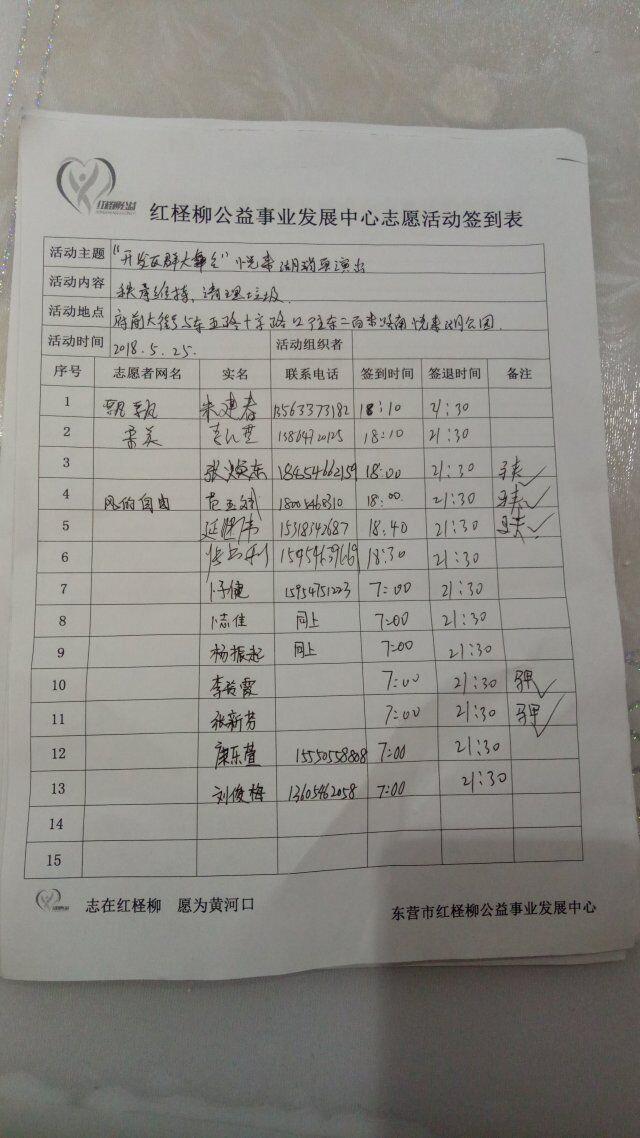 红柽柳公益
红柽柳公益事业发展中心志愿活动签到表
活动主题 "开发区群大舞台"悦来湖 演出
活动内容 秩序维持，清理垃圾.
活动地点 府前大街与东五路十字路口往东二百米路南悦来湖公园.
活动时间 2018.5.25. 活动组织者
序号 志愿者网名 实名 联系电话 签到时间 签退时间 备注
1 飘飘 朱建春 13563773182 18:10 21:30
2 柔美 13864720125 18:10 21:30
3 张焕东 18454662159 18:00 21:30 ✓
4 风的自由 范玉斌 18005468310 18:00 21:30 ✓
5 延继伟 15318342687 18:40 21:30 ✓
6 18:30 21:30
7 15954751223 7:00 21:30
8 同上 7:00 21:30
9 杨振起 同上 7:00 21:30
10 李玲霞 7:00 21:30 ✓
11 张新芳 7:00 21:30 ✓
12 康乐萱 15550558808 7:00 21:30
13 刘俊梅 13605462058 7:00 21:30
14
15
志在红柽柳 愿为黄河口
东营市红柽柳公益事业发展中心